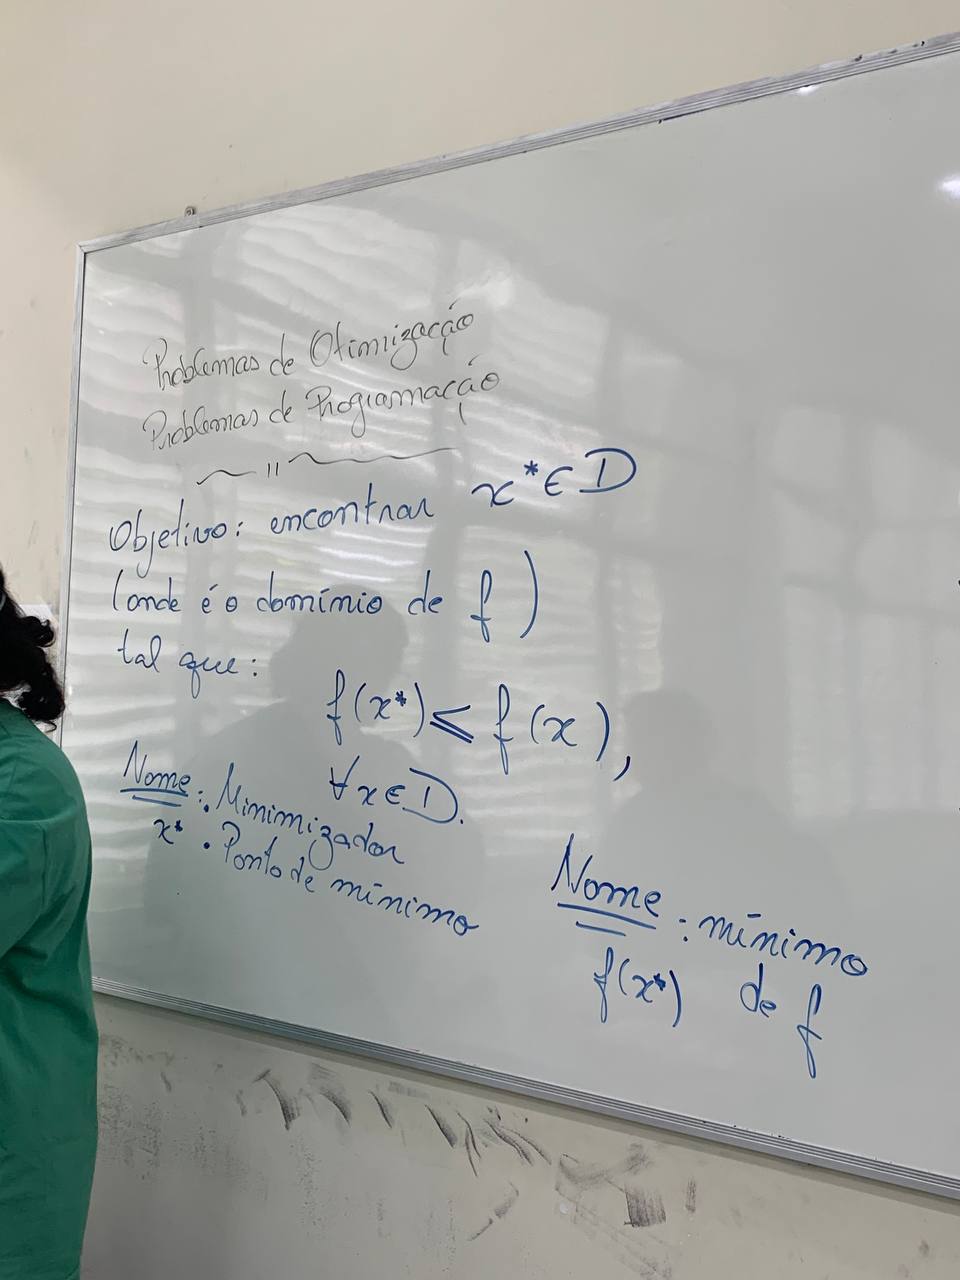 Problemas de Otimização
Problemas de Programação
Objetivo: encontrar x* ∈ D
(onde é o domínio de f)
tal que:
f(x*) ≤ f(x),
∀ x ∈ D.
Nome: • Minimizador
x* • Ponto de mínimo
Nome: mínimo
f(x*) de f